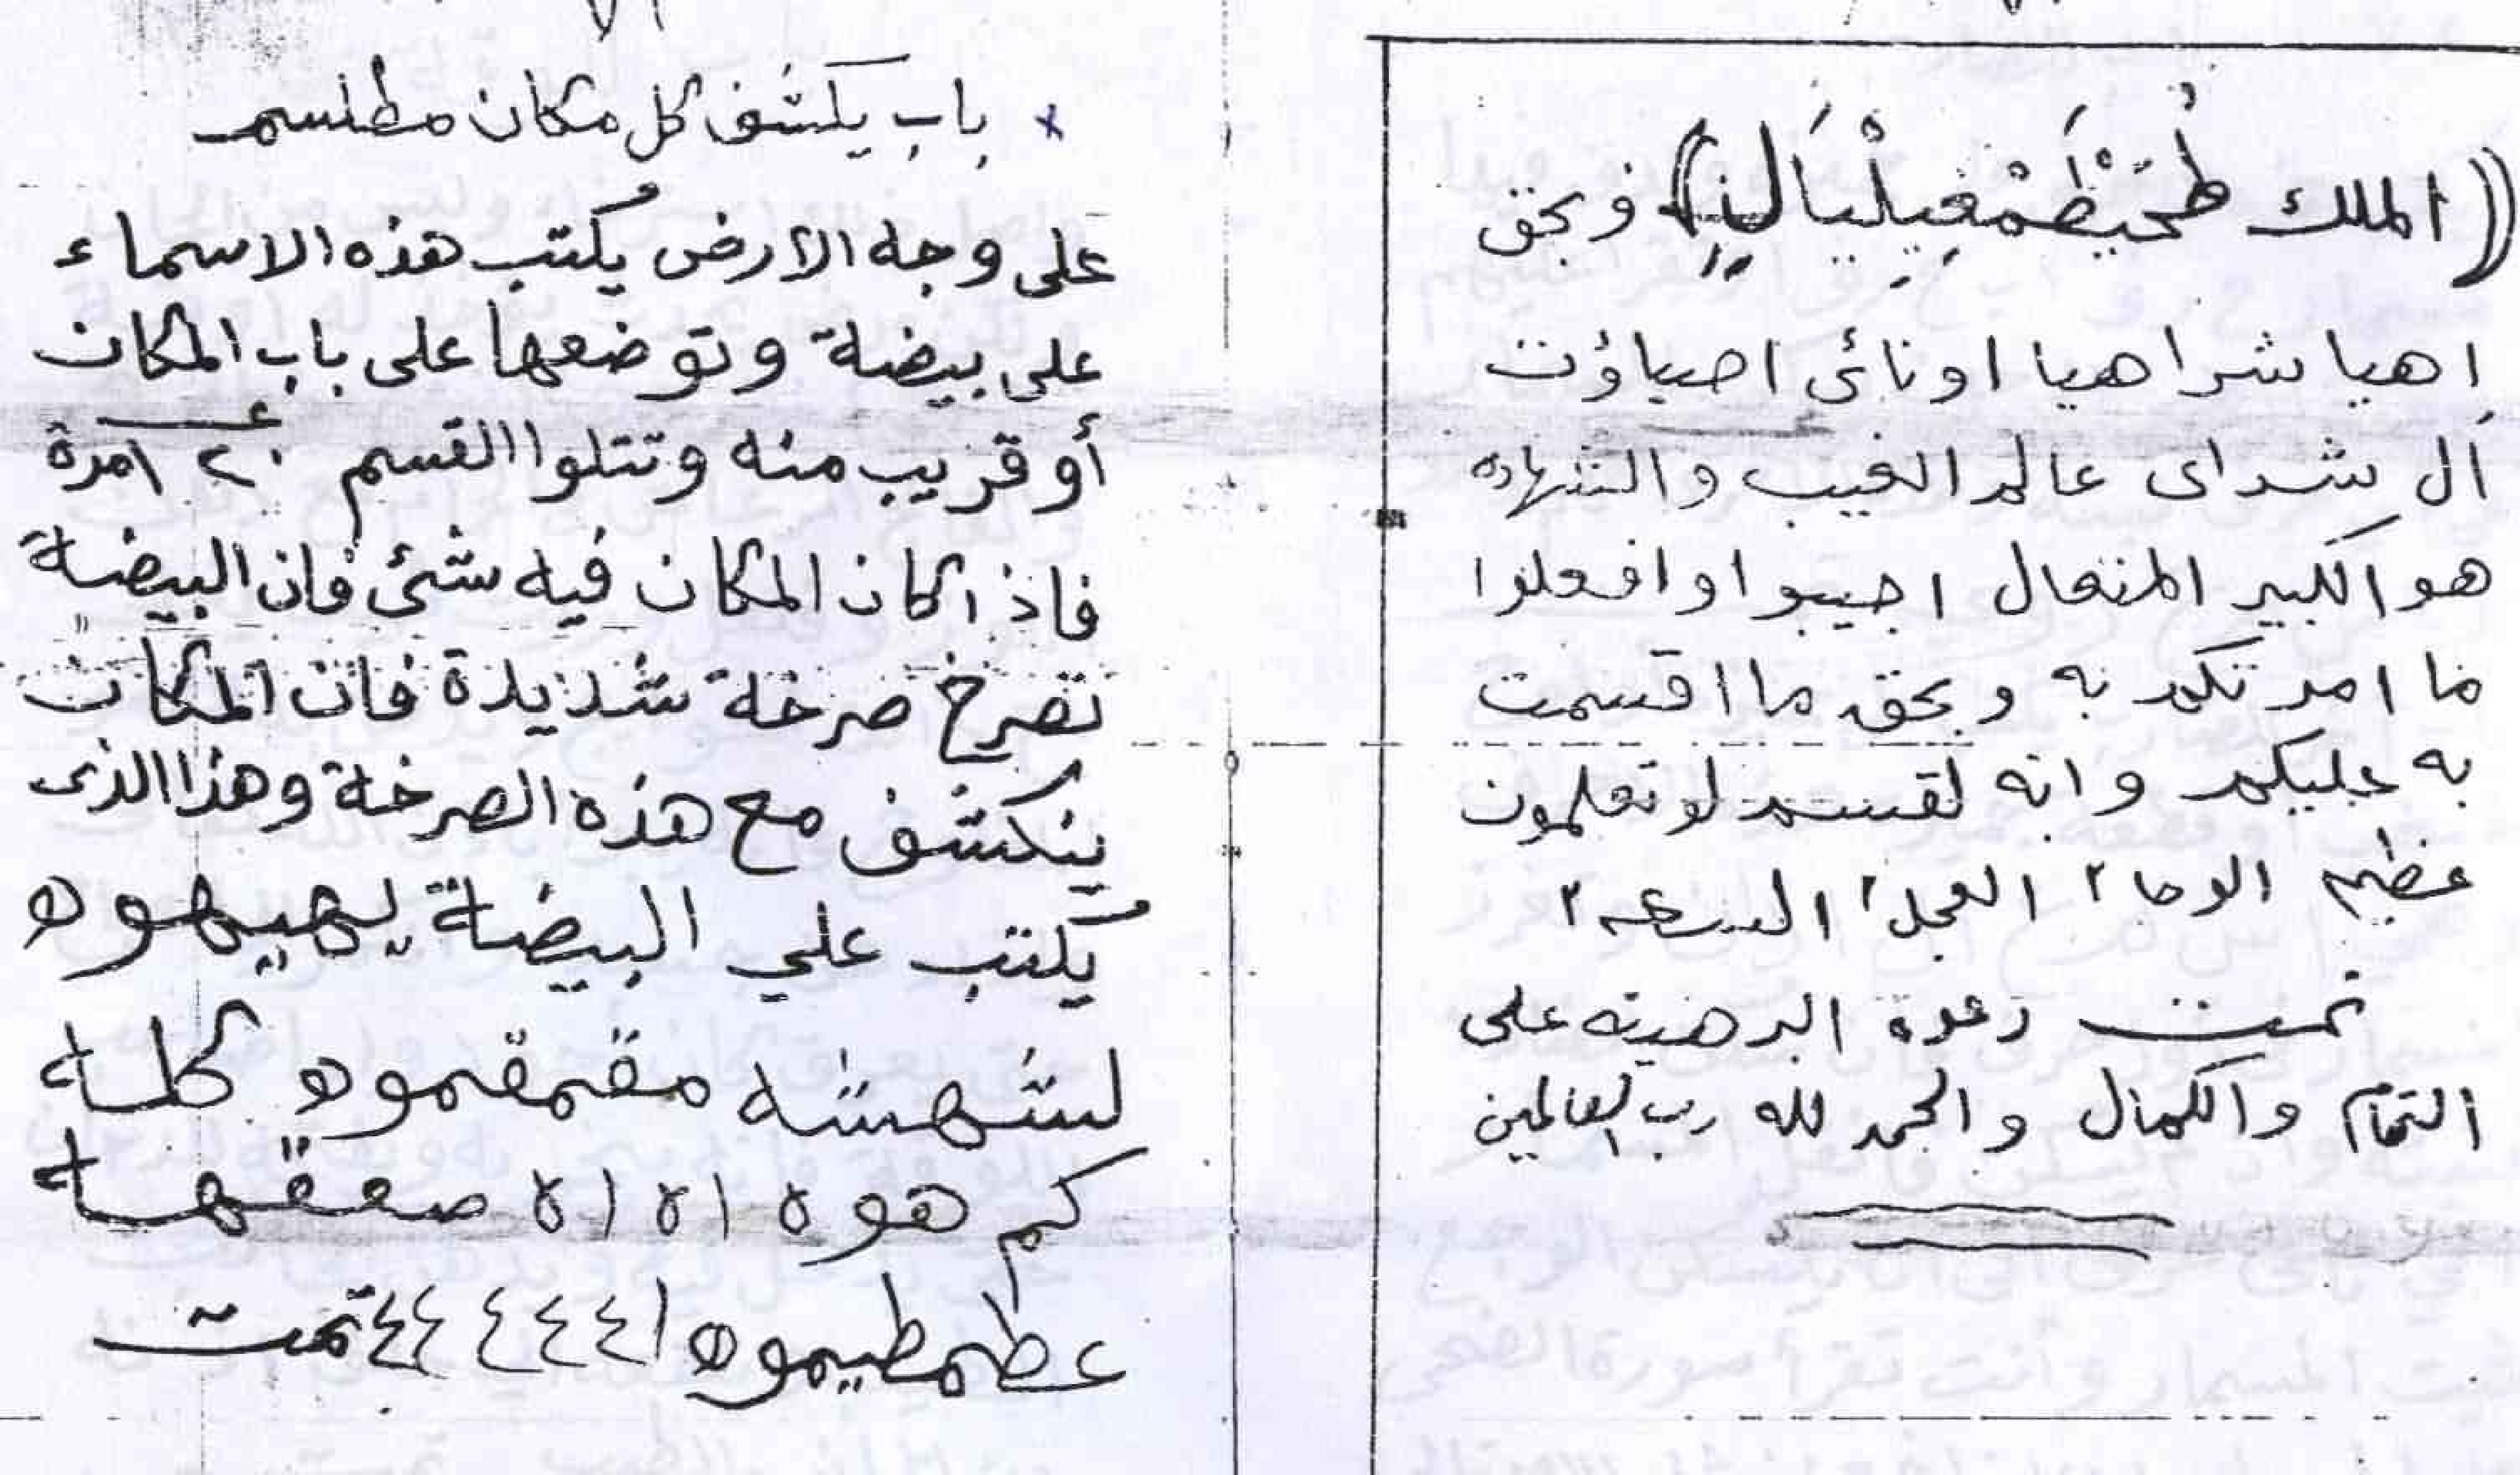 ((الملك طُحَيْظَمْغِيلْيَالِ)) فبحق
اهيا شراهيا اونائى اصباؤت
آل شداى عالم الغيب والشهاده
هو الكبير المتعال اجيبوا وافعلوا
ما امرتكم به وبحق ما اقسمت
به عليكم وانه لقسم لو تعلمون
عظيم الوحا ٢ العجل ٢ السرعه ٢
تمت دعوة البرهيته على
التمام والكمال والحمد لله رب العالمين
x باب يكشف كل مكان مطلسم
على وجه الأرض يُكتب هذه الاسماء
على بيضة وتوضعها على باب المكان
أو قريب منه وتتلوا القسم مرة
فاذا كان المكان فيه شئ فان البيضة
تصرخ صرخة شديدة فان المكان
ينكشف مع هذه الصرخة وهذا الذى
يكتب علي البيضة يهيهوه
لشهشه مقمقموه كله
كم هوه ااه اه صعقها
عطمطيموه ا ٤ ٤ ٤ ٤ ٤ تمت